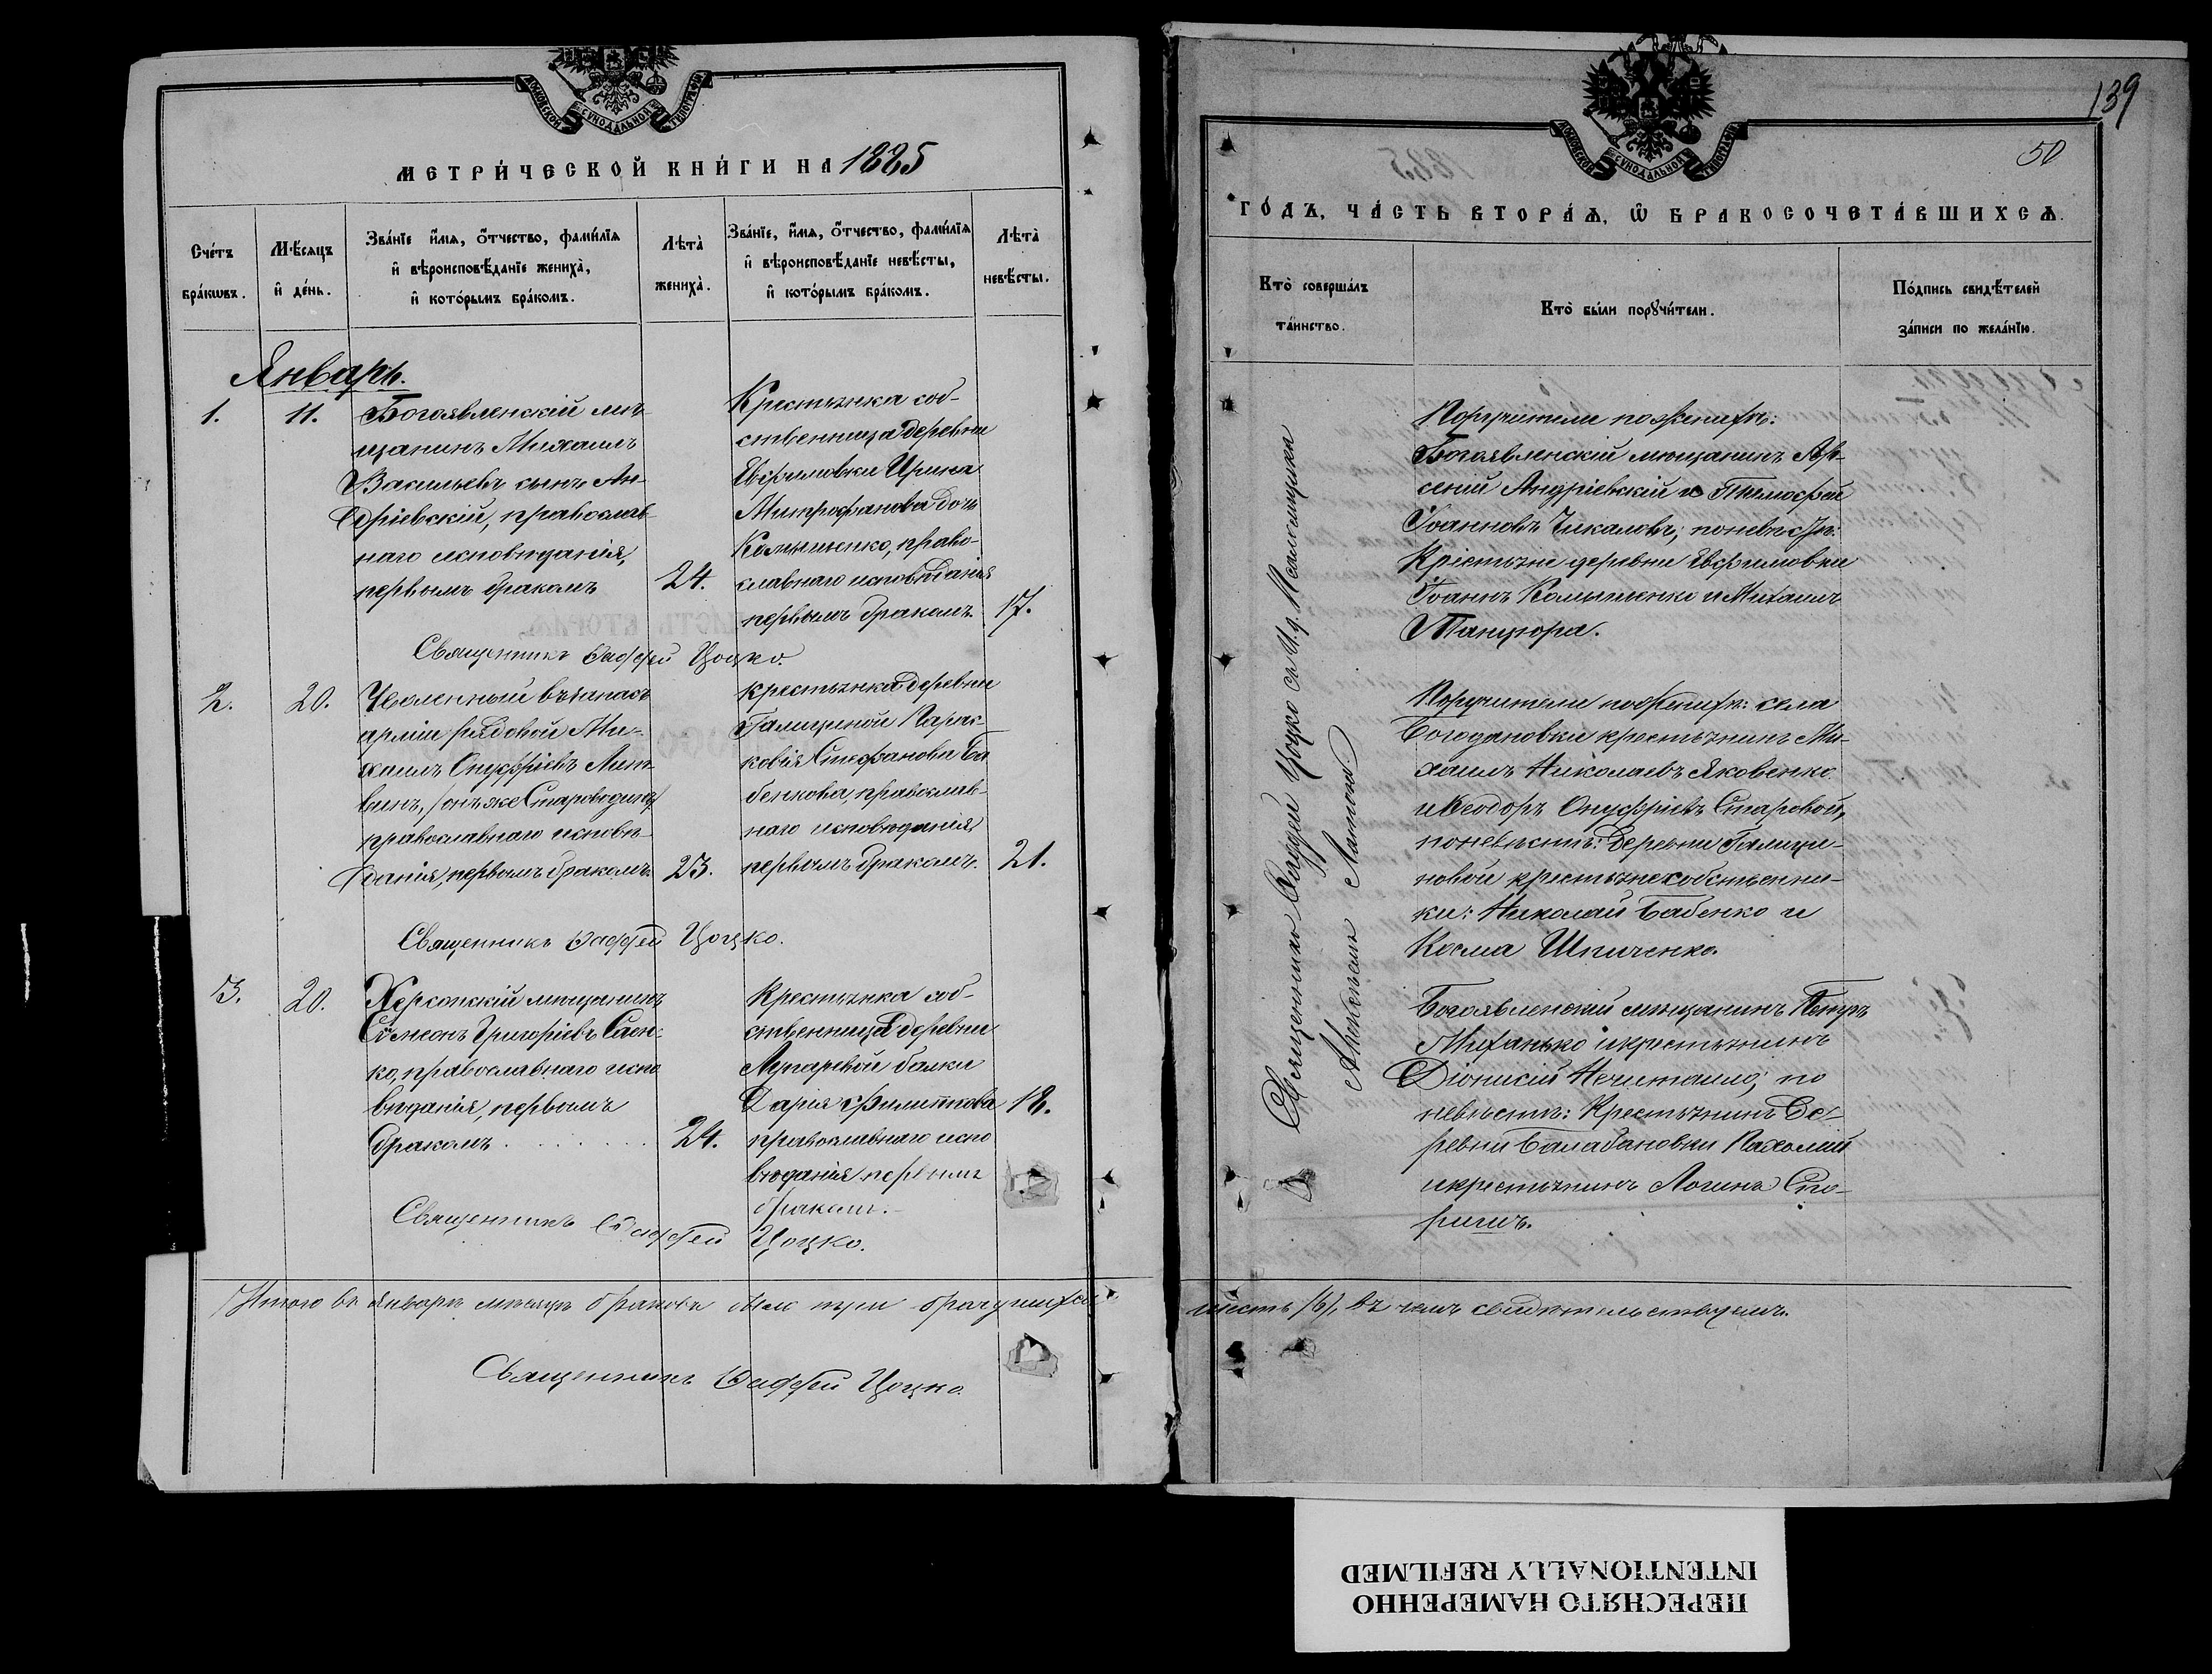 МЕТРИ́ЧЕСКОЙ КНИ́ГИ НА 1885
Сче́тъ бра́кωвъ.
Мѣ́сяцъ и҆ де́нь.
Зва́нїе и҆́мя, ѻ҆́тчество, фами́лїя и҆ вѣроисповѣ́данїе жениха̀, и҆ кото́рымъ бра́комъ.
Лѣта̀ жениха̀.
Зва́нїе, и҆́мя, ѻ҆́тчество, фами́лїя и҆ вѣроисповѣ́данїе невѣ́сты, и҆ кото́рымъ бра́комъ.
Лѣта̀ невѣ́сты.
Январь.
1.
11.
Богоявленскій мѣ-
щанинъ Михаилъ
Васильевъ сынъ Ан-
дріевскій, православ-
наго исповѣданія,
первымъ бракомъ
24.
Крестьянка соб-
ственница деревни
Евфимовки Ирина
Митрофанова дочь
Камышенко, право-
славнаго исповѣданія
первымъ бракомъ.
17.
Священникъ Фаддей Цоцко.
2.
20.
Уволенный въ запасъ
арміи рядовой Ми-
хаилъ Онуфріевъ Лит-
винъ, /онъ же Староводинъ/
православнаго исповѣ-
данія, первымъ бракомъ
23.
крестьянка деревни
Галициной Парас-
ковія Стефанова Ба
бенкова, православ-
наго исповѣданія,
первымъ бракомъ.
21.
Священникъ Фаддей Цоцко.
3.
20.
Херсонскій мѣщанинъ
Симеонъ Григоріевъ Саен-
ко, православнаго испо
вѣданія, первымъ
бракомъ . . . . . . .
24.
Крестьянка соб-
ственница деревни
Лупаревой балки
Дарія Филиппова
православнаго испо
вѣданія первымъ
бракомъ.
18.
Священникъ Фаддей Цоцко.
Итого въ Январѣ мѣсяцѣ браковъ было три брачущихся
Священникъ Фаддей Цоцко.
139
50
ГО́ДЪ, ЧА́СТЬ ВТОРА́Ѧ, Ѡ҆ БРАКОСОЧЕТА́ВШИХСѦ.
Кто̀ соверша́лъ та́инство.
Кто̀ бы́ли порꙋчи́тели.
По́дпись свидѣ́телей за́писи по жела́нїю.
Священникъ Фаддей Цоцко съ И.д. Псаломщика
Поручители по женихѣ:
Богоявленскій мѣщанинъ Ар-
сеній Андріевскій и Тимофей
Іоанновъ Чикаловъ; по невѣстѣ:
Крестьяне деревни Евфимовки
Іоаннъ Камышенко и Михаилъ
Танцюра.
Поручители по женихѣ: села
Богодановки крестьянинъ Ми-
хаилъ Николаевъ Яковенко
и Феодоръ Онуфріевъ Старовой,
по невѣстѣ: деревни Галици-
новой крестьяне собственни-
ки: Николай Бабенко и
Косма Шпиченко.
Богоявленскій мѣщанинъ Петръ
Миханько и крестьянинъ
Діонисій Нечитайло; по
невѣстѣ: Крестьянинъ де-
ревни Балабановки Пахомій
и крестьянинъ Логинъ Сто-
ришъ.
шесть /6/, въ чемъ свидѣтельствуемъ.
ПЕРЕСНЯТО НАМЕРЕННО
INTENTIONALLY REFILMED